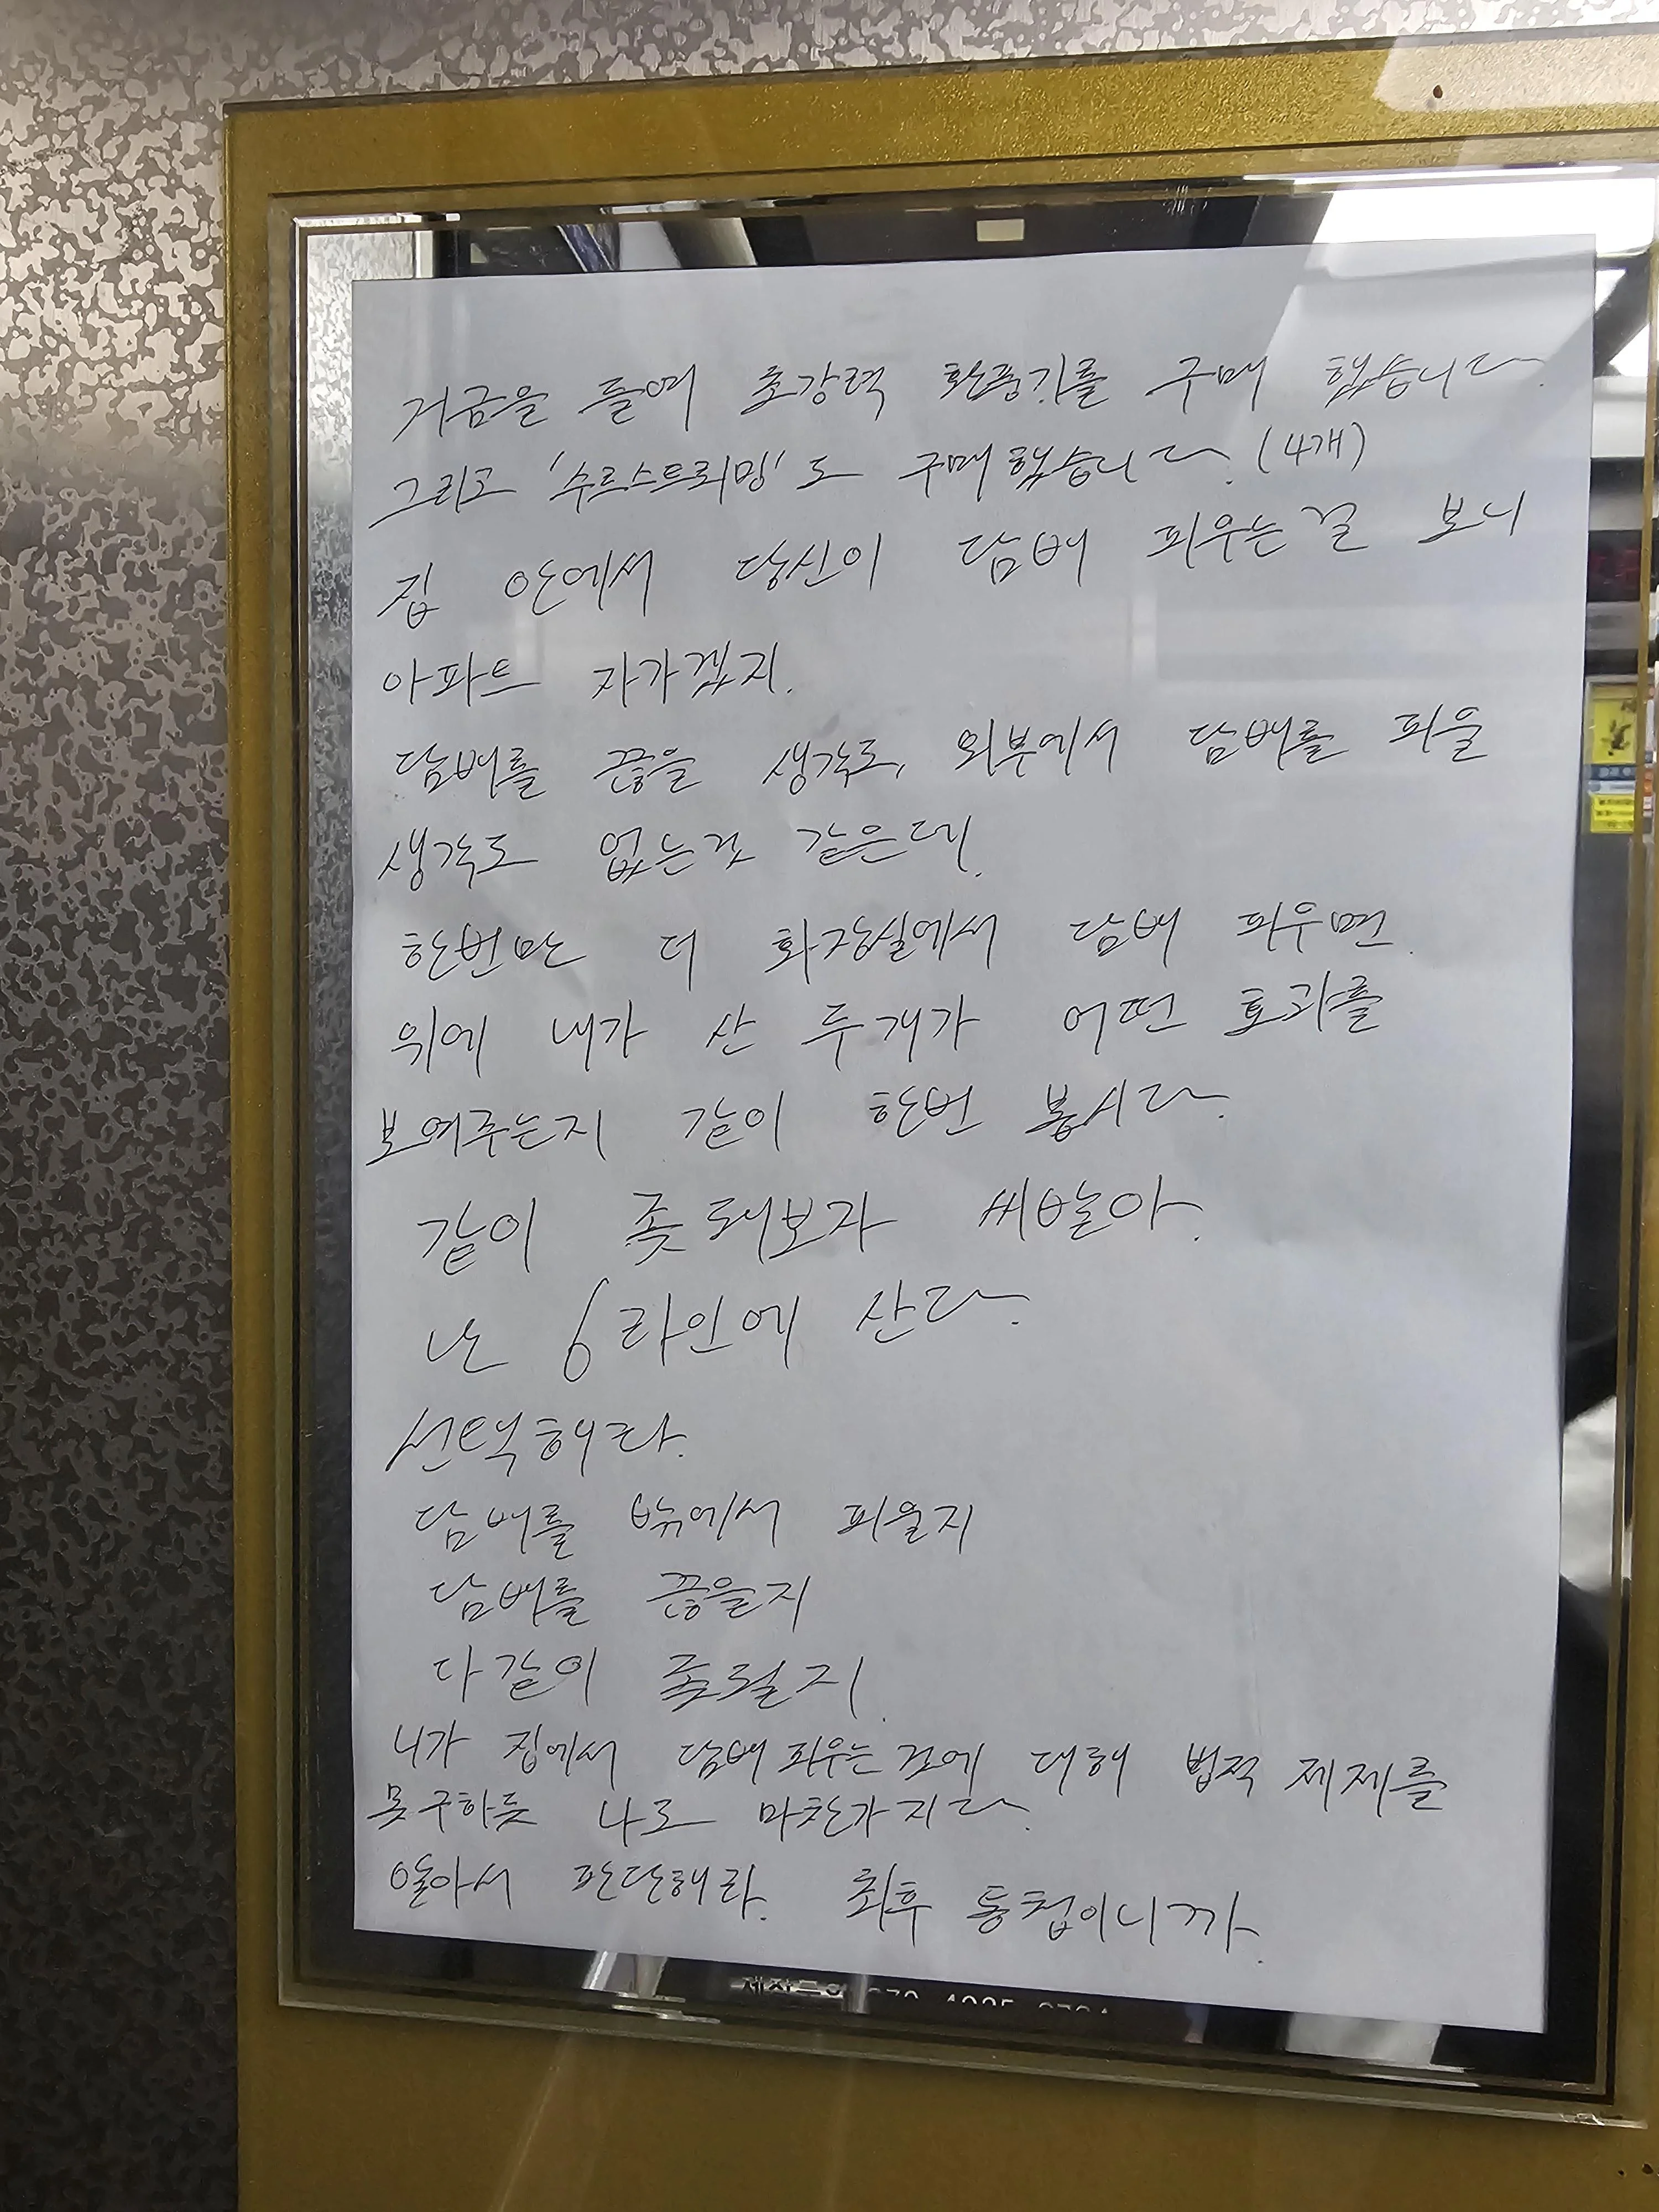 거금을 들여 초강력 환풍기를 구매 했습니다.
그리고 '수르스트뢰밍'도 구매했습니다. (4개)
집 안에서 당신이 담배 피우는걸 보니
아파트 자가겠지.
담배를 끊을 생각도, 외부에서 담배를 피울
생각도 없는것 같은데.
한번만 더 화장실에서 담배 피우면
위에 내가 산 두개가 어떤 효과를
보여주는지 같이 한번 봅시다.
같이 좆돼보자 씨발아.
난 6라인에 산다.
선택해라.
담배를 밖에서 피울지
담배를 끊을지
다같이 좆될지.
니가 집에서 담배 피우는것에 대해 법적 제제를
못구하듯 나도 마찬가지다.
알아서 판단해라. 최후 통첩이니까.